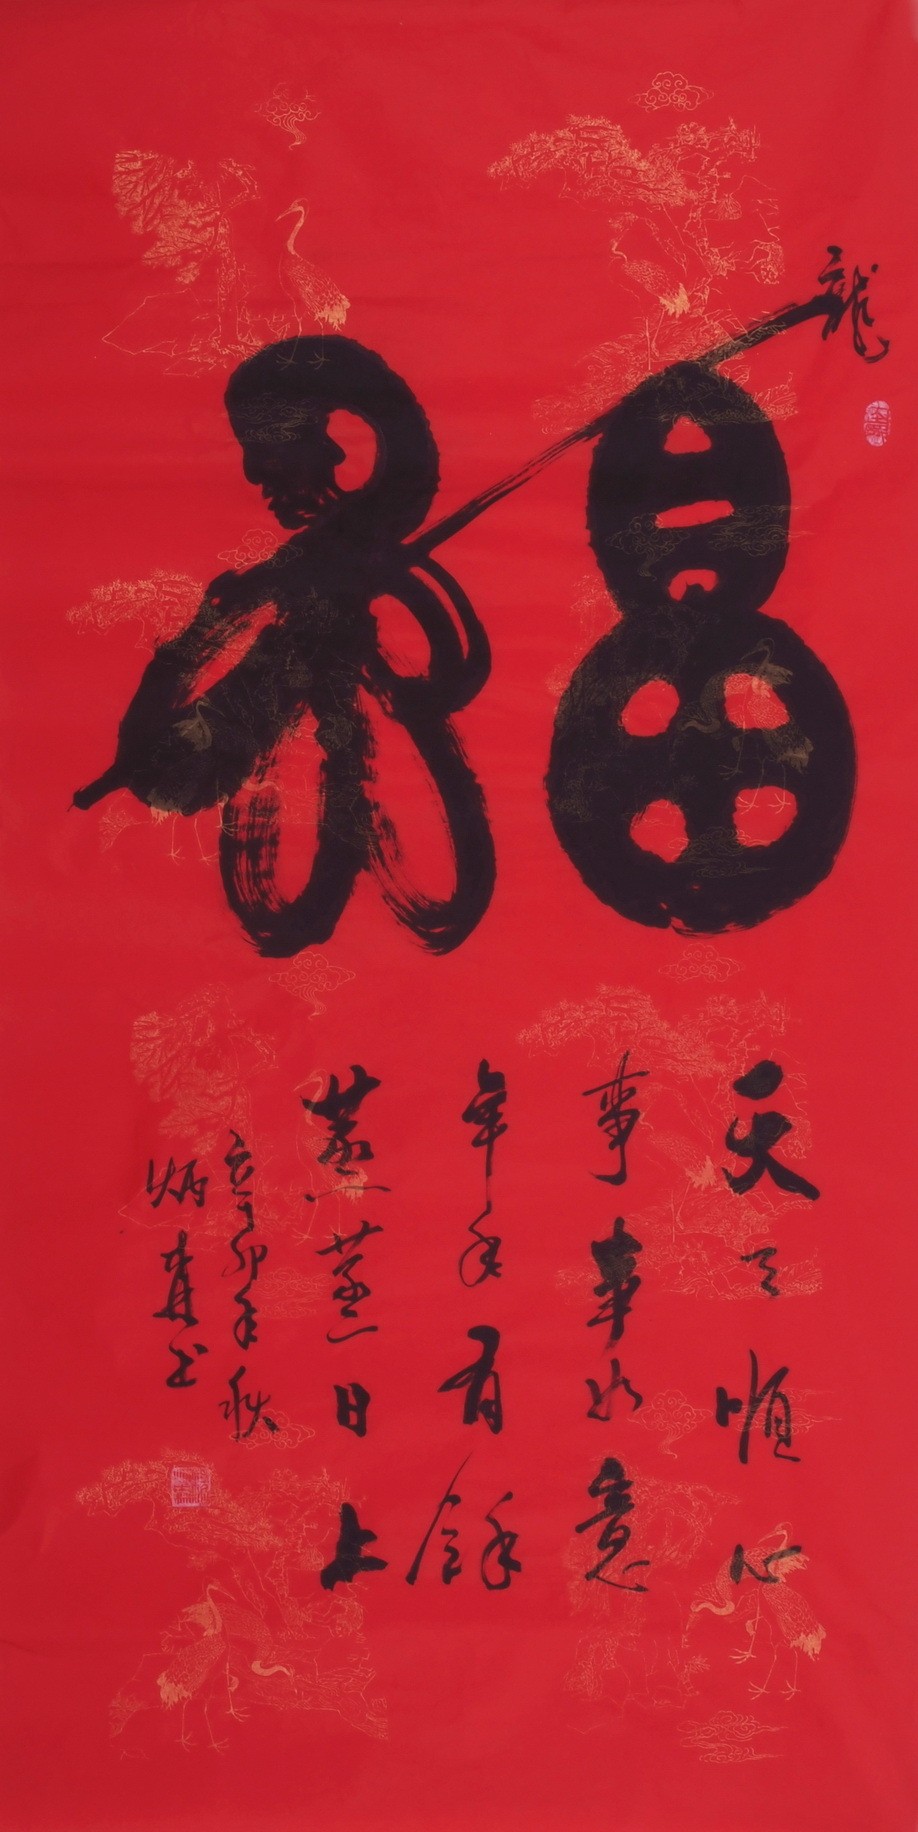 龍
福
天天順心
事事如意
年年有餘
蒸蒸日上
辛卯年秋
炳 书